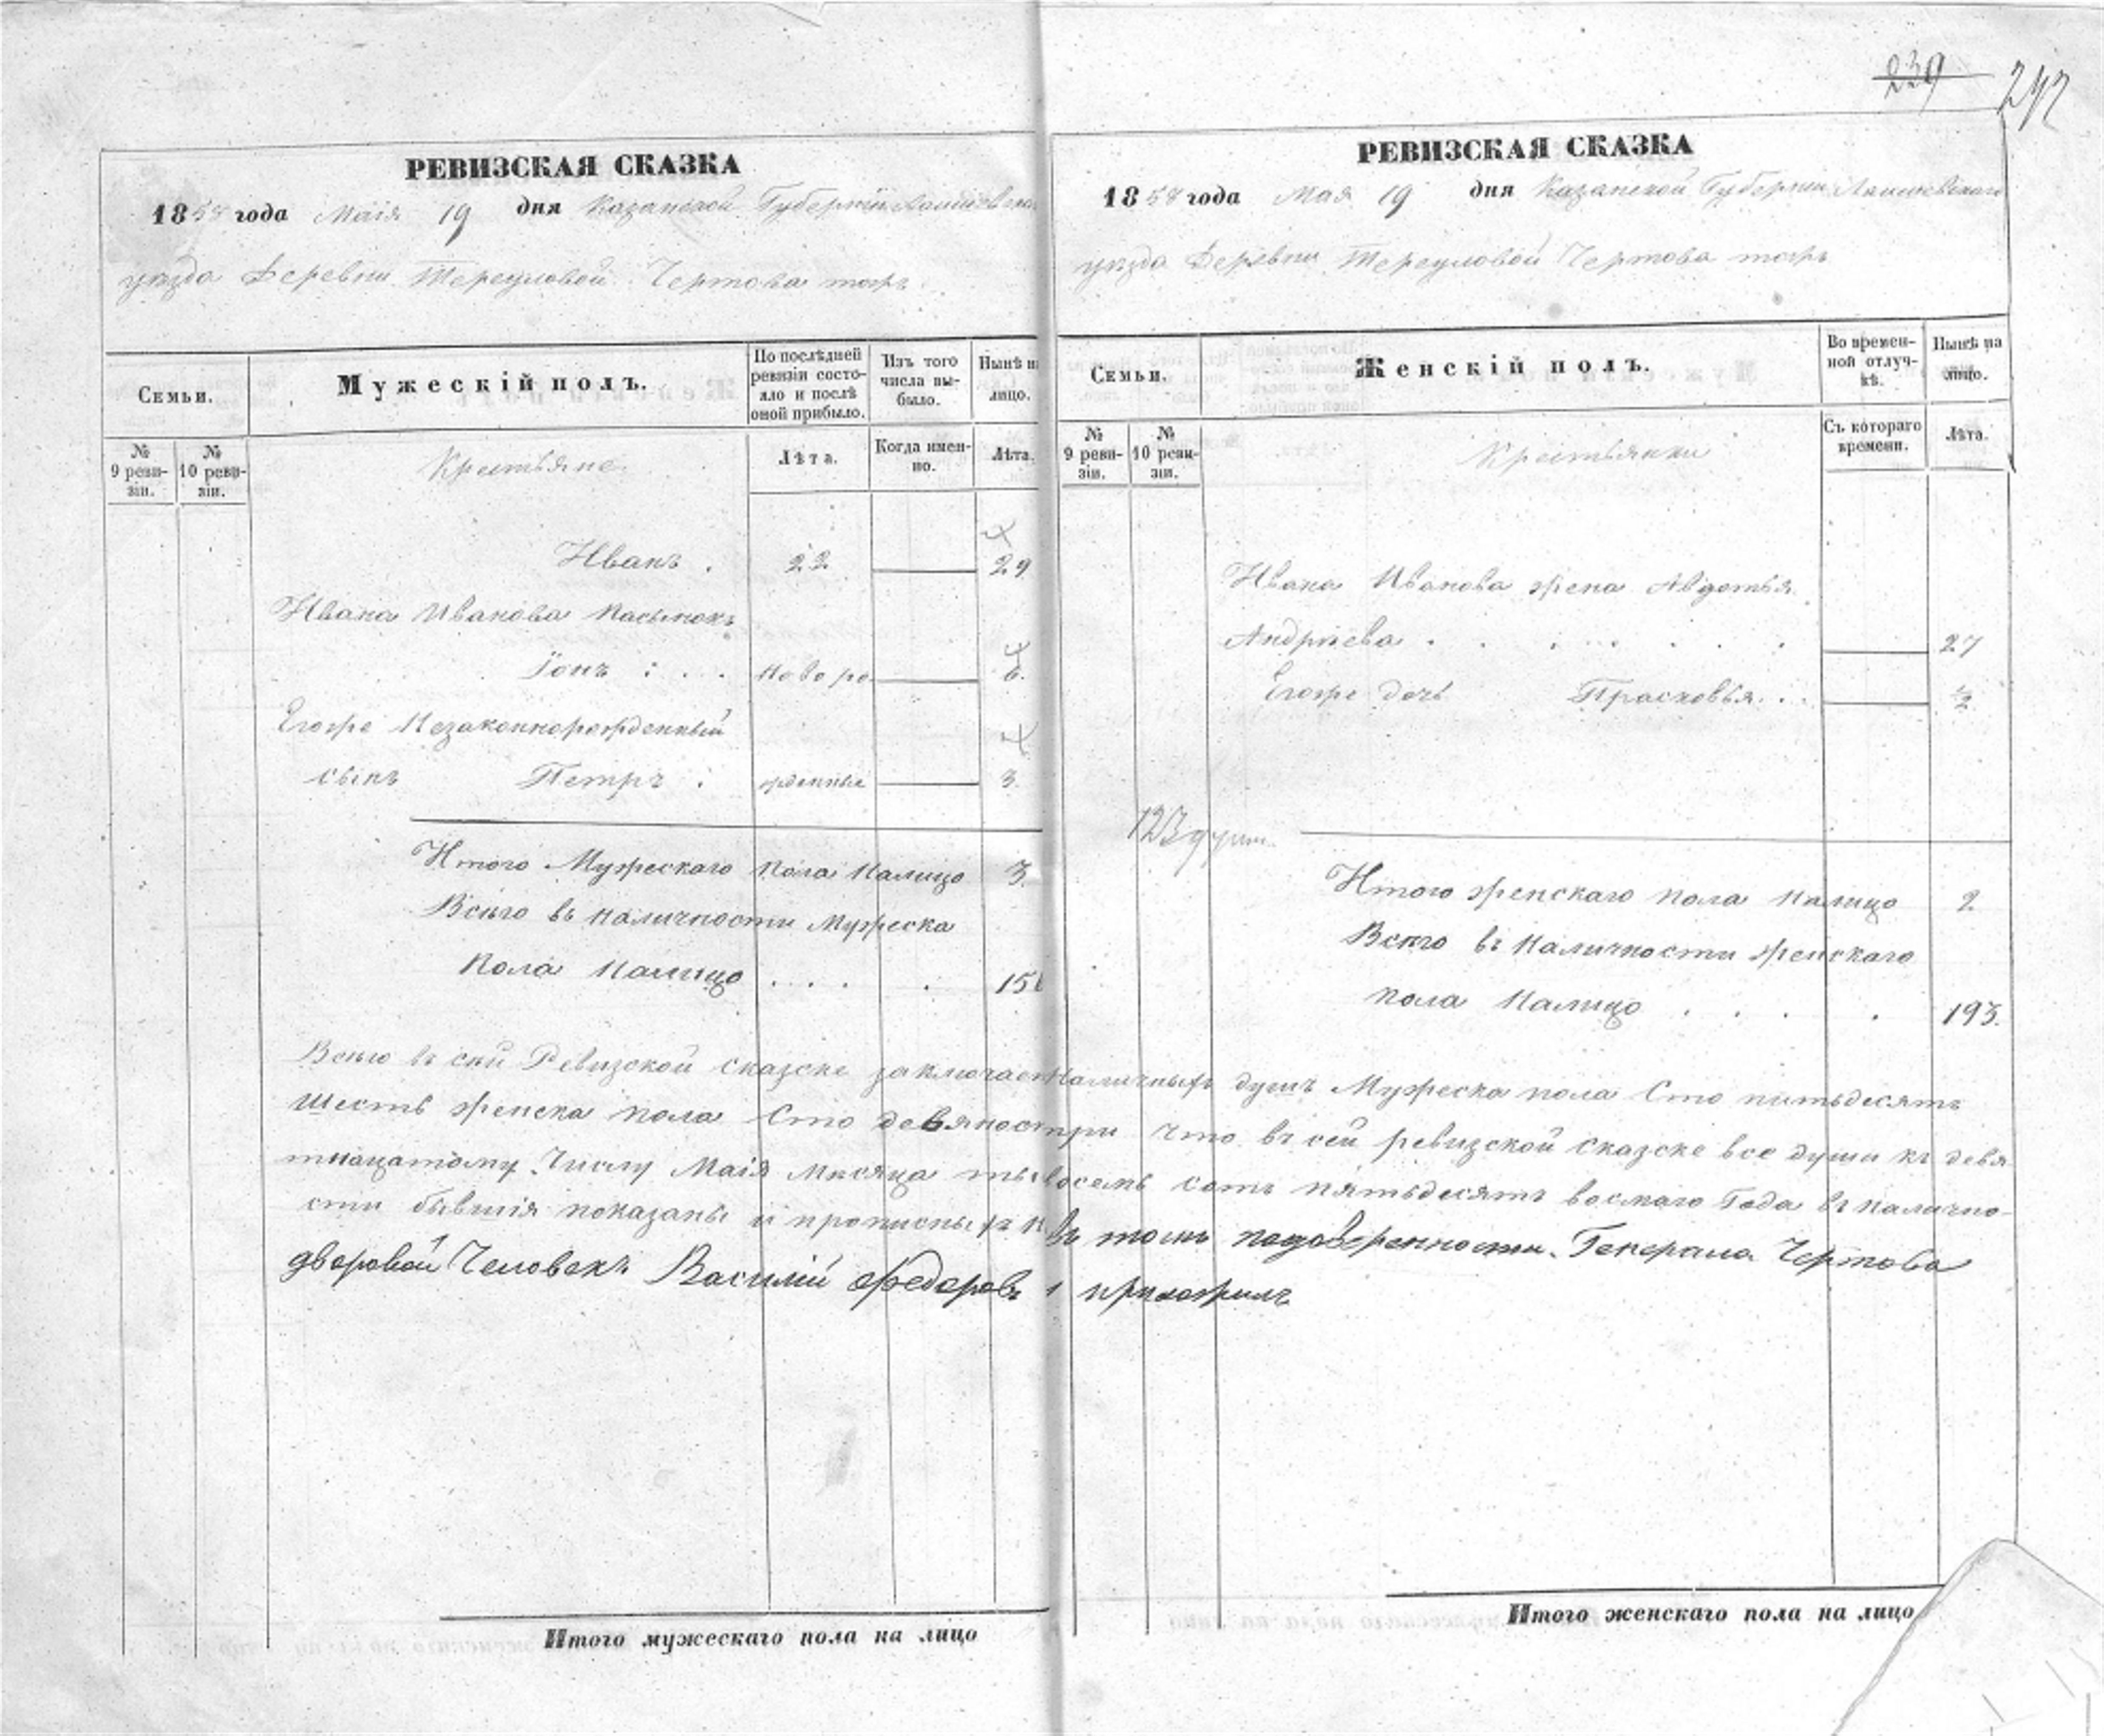 239 242
РЕВИЗСКАЯ СКАЗКА
1858 года Маія 19 дня Казанской Губерніи Лаишевска
уѣзда Деревни Тереуловой Чертова тожъ
Семьи.
Мужескій полъ.
По послѣдней ревизіи состояло и послѣ оной прибыло.
Изъ того числа выбыло.
Нынѣ на лицо.
№ 9 ревизіи.
№ 10 ревизіи.
Крестьяне.
Лѣта.
Когда именно.
Лѣта.
Иванъ . 22 29
Ивана Иванова пасынокъ
Іонъ : . . новоро 6.
Егоже Незаконнорожденный
сынъ Петръ . жденные 3.
Итого Мужескаго пола налицо 3.
Всего въ наличности Мужеска
пола налицо . . . . 15
РЕВИЗСКАЯ СКАЗКА
1858 года Мая 19 дня Казанской Губерніи Лаишевскаго
уѣзда Деревни Тереуловой Чертова тожъ
Семьи.
Женскій полъ.
Во временной отлучкѣ.
Нынѣ на лицо.
№ 9 ревизіи.
№ 10 ревизіи.
Крестьянки
Съ котораго времени.
Лѣта.
Ивана Иванова жена Авдотья
Андрѣева . . . . . . . 27
Егоже дочь Прасковья . . ½
123 душ.
Итого женскаго пола налицо 2
Всего въ наличности женскаго
пола налицо . . . . 193.
Всего въ сей Ревизской сказске заключает наличныхъ душъ Мужеска пола Сто пятьдесятъ
шесть женска пола Сто девяност три что въ сей ревизской сказске все души къ девя
тнацатому Числу Маія Месяца ты восемь сотъ пятьдесятъ восмаго Года въ налично-
сти бывшія показаны и прописныхъ н въ томъ подоверенности Генерала Чертова
дворовой Человекъ Василій Федоровъ приложилъ
Итого мужескаго пола на лицо
Итого женскаго пола на лицо